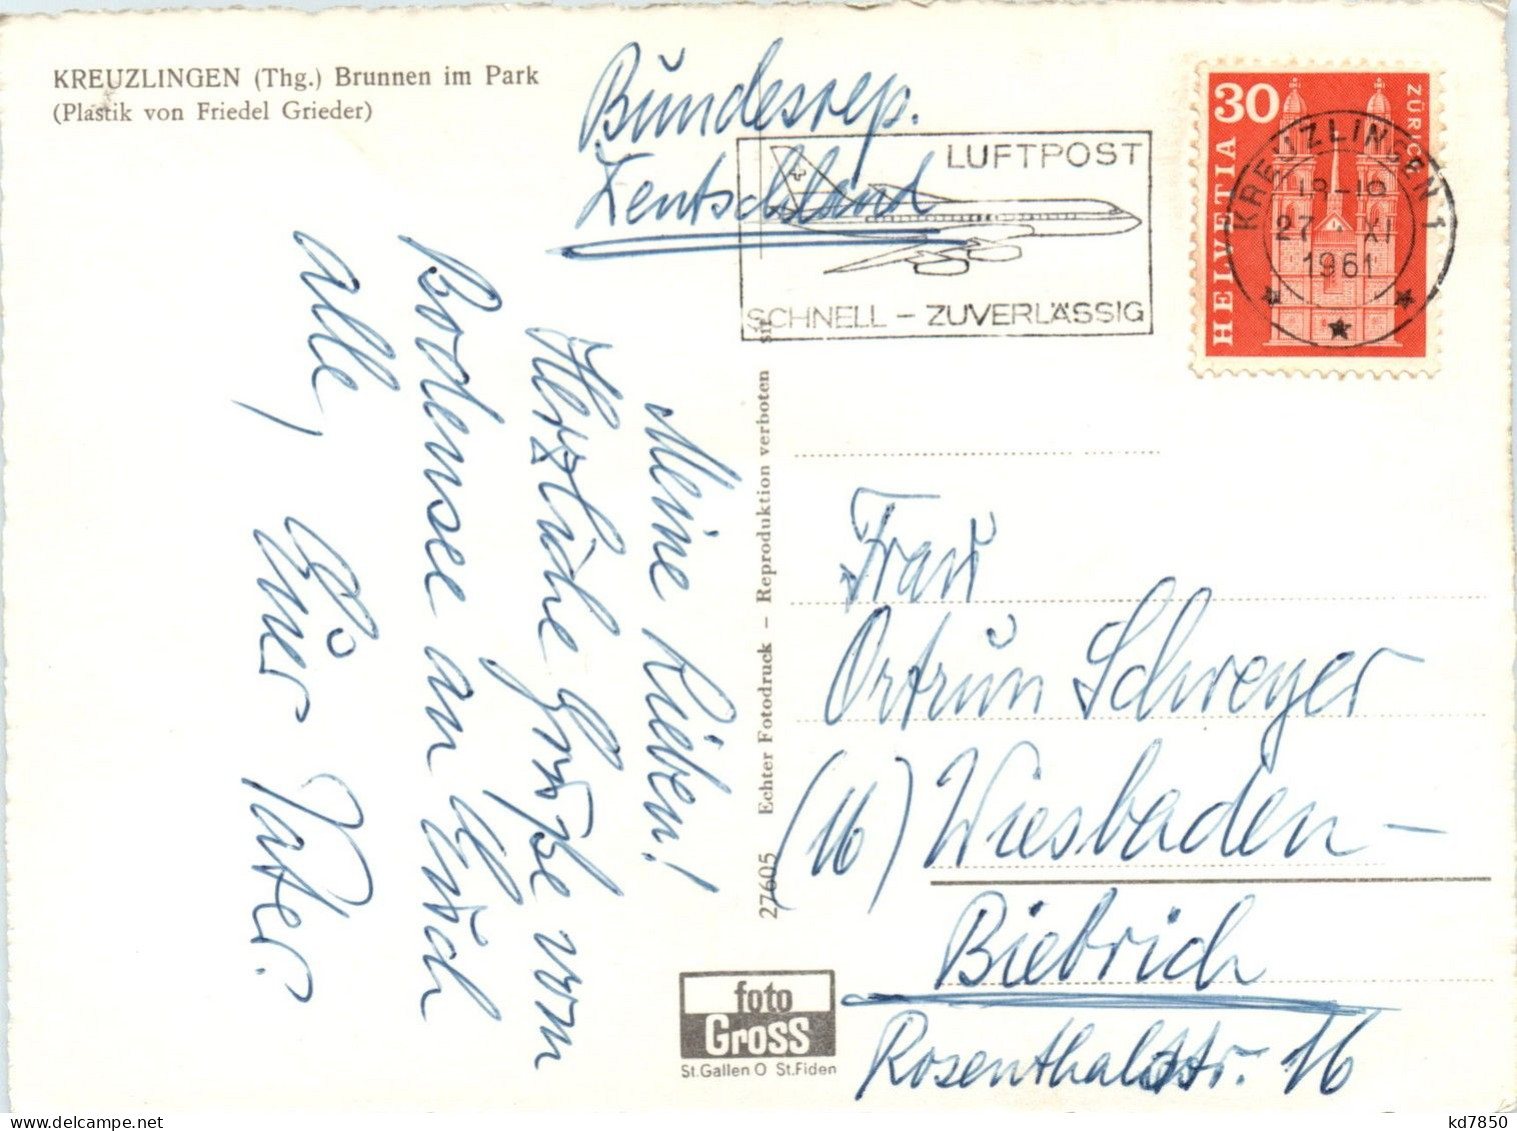 KREUZLINGEN (Thg.) Brunnen im Park
(Plastik von Friedel Grieder)
Bundesrep.
Deutschland
LUFTPOST
SCHNELL – ZUVERLÄSSIG
30
HELVETIA
ZÜRICH
KREUZLINGEN 1
18-19
27. XI
1961
Meine Lieben!
Herzliche Grüße vom
Bodensee an Euch
alle, Euer Vater.
27605 Echter Fotodruck – Reproduktion verboten
Frau
Ortrun Schreyer
(16) Wiesbaden –
Biebrich
Rosenthalstr. 16
foto
Gross
St.Gallen O St.Fiden
kd7850